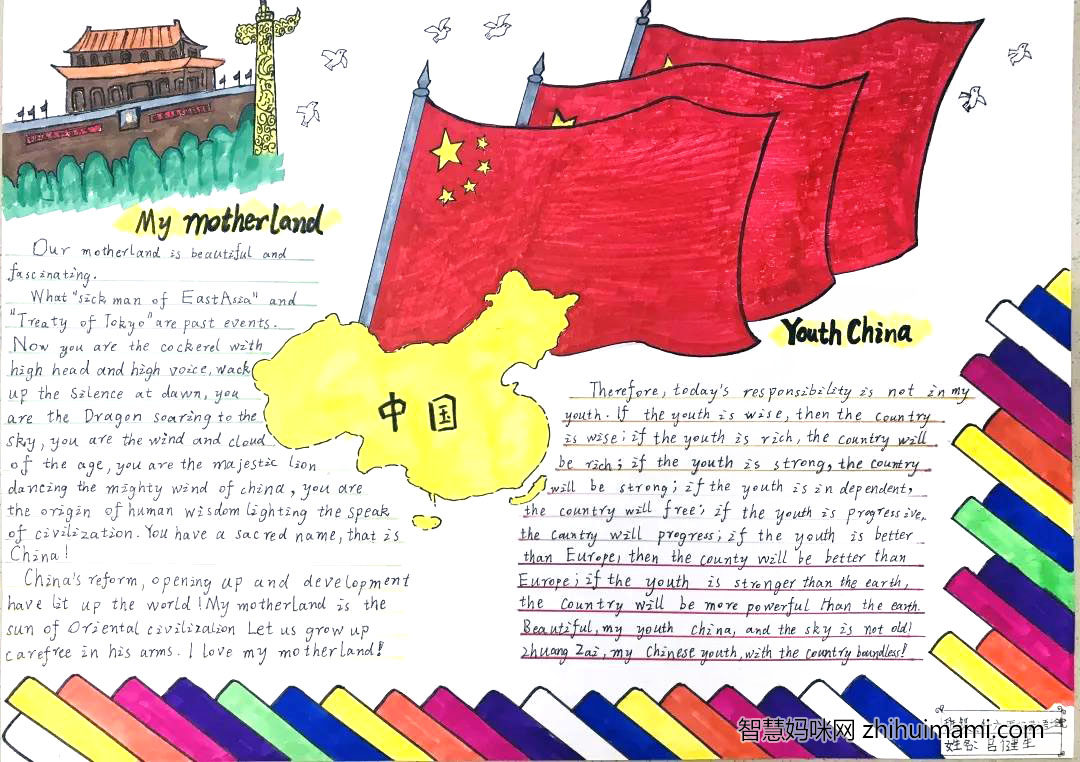 My motherland
Our motherland is beautiful and
fascinating.
What "sick man of EastAsia" and
"Treaty of Tokyo" are past events.
Now you are the cockerel with
high head and high voice, wack
up the silence at dawn, you
are the Dragon soaring to the
sky, you are the wind and cloud
of the age, you are the majestic lion
dancing the mighty wind of china, you are
the origin of human wisdom lighting the speak
of civilization. You have a sacred name, that is
China!
China's reform, opening up and development
have lit up the world! My motherland is the
sun of Oriental civilization Let us grow up
carefree in his arms. I love my motherland!
中国
Youth China
Therefore, today's responsibility is not in my
youth. If the youth is wise, then the country
is wise; if the youth is rich, the country will
be rich; if the youth is strong, the country
will be strong; if the youth is in dependent,
the country will free; if the youth is progressive,
the country will progress; if the youth is better
than Europe, then the county will be better than
Europe; if the youth is stronger than the earth,
the country will be more powerful than the earth.
Beautiful, my youth China, and the sky is not old!
Zhuang Zai, my Chinese youth, with the country boundless!
姓名: 吕健生
智慧妈咪网 zhihuimami.com